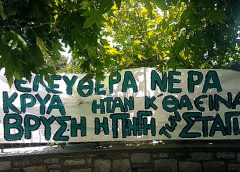 ΕΛΕΥΘΕΡΑ ΝΕΡΑ
ΚΡΥΑ ΗΤΑΝ Κ ΘΑ ΕΙΝΑ
ΒΡΥΣΗ Η ΠΗΓΗ ΤΟΥ ΣΤΑΓΙ